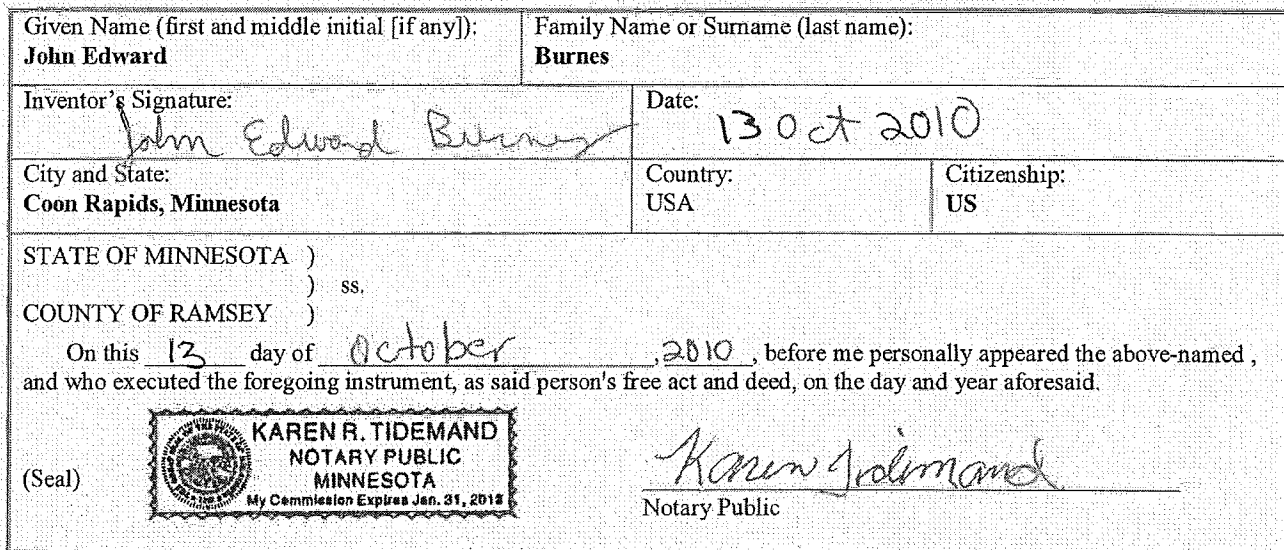 Given Name (first and middle initial [if any]): Family Name or Surname (last name):
John Edward Burnes
Inventor's Signature: Date:
John Edward Burnes 13 Oct 2010
City and State: Country: Citizenship:
Coon Rapids, Minnesota USA US
STATE OF MINNESOTA )
) ss.
COUNTY OF RAMSEY )
On this 13 day of October ,2010 , before me personally appeared the above-named ,
and who executed the foregoing instrument, as said person's free act and deed, on the day and year aforesaid.
(Seal)
KAREN R. TIDEMAND
NOTARY PUBLIC
MINNESOTA
My Commission Expires Jan. 31,
Karen Tidemand
Notary Public